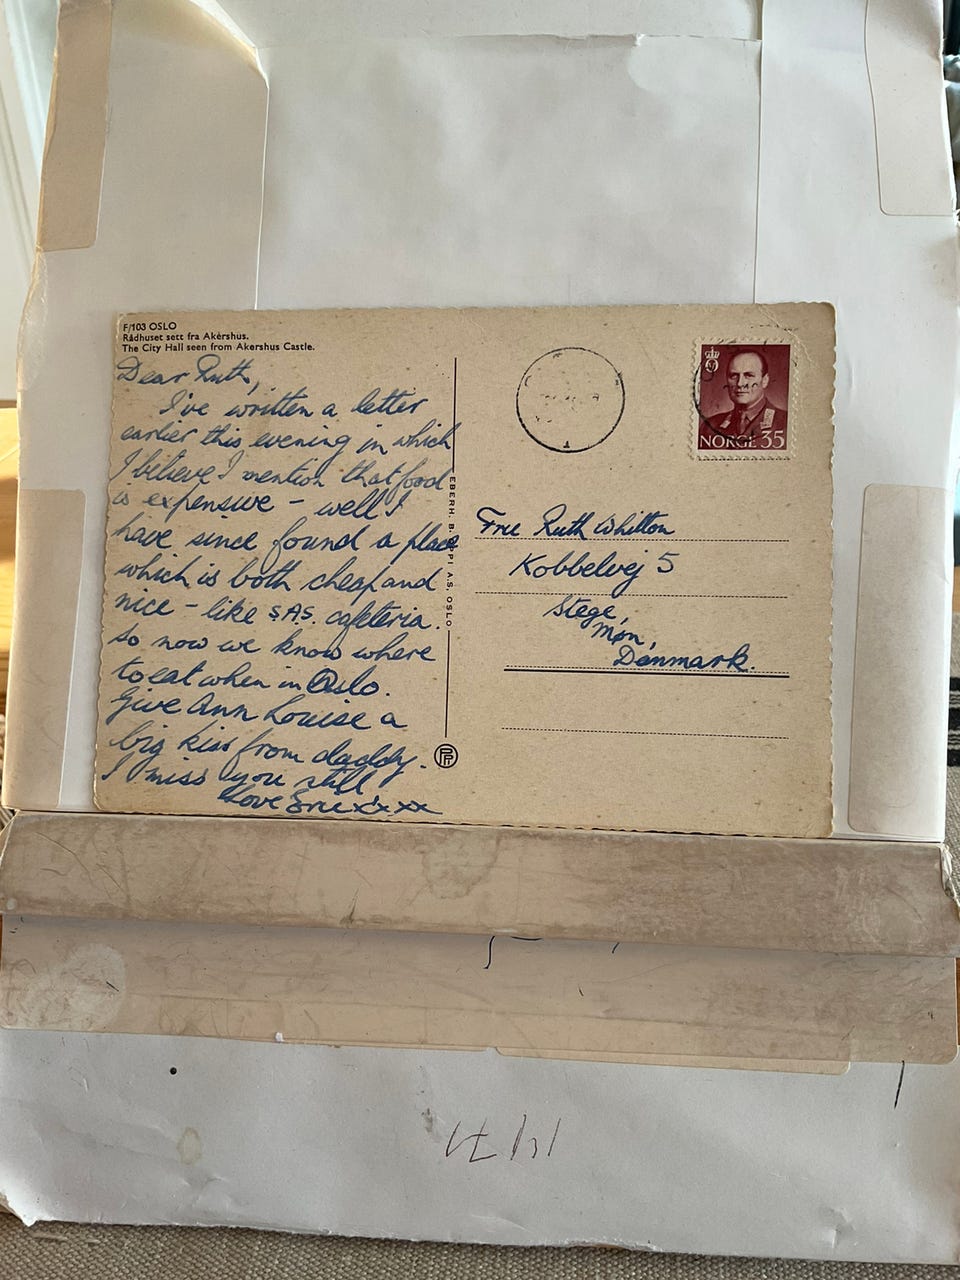 F/103 OSLO
Rådhuset sett fra Akershus.
The City Hall seen from Akershus Castle.
Dear Ruth,
I've written a letter
earlier this evening in which
I believe I mention that food
is expensive - well I
have since found a place
which is both cheap and
nice - like S.A.S. cafeteria.
So now we know where
to eat when in Oslo.
Give Ann Louise a
big kiss from daddy.
I miss you still
Love xxxx
EBERH. B. OPPI A.S. OSLO
NORGE 35
Ruth Whitton
Kobbelvej 5
Stege,
Møn,
Danmark.